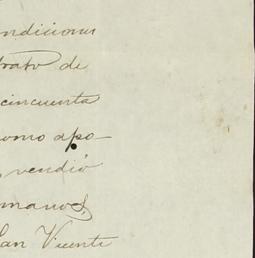 ndiciones
trato de
cincuenta
como apo-
vendió
manos
San Vicente